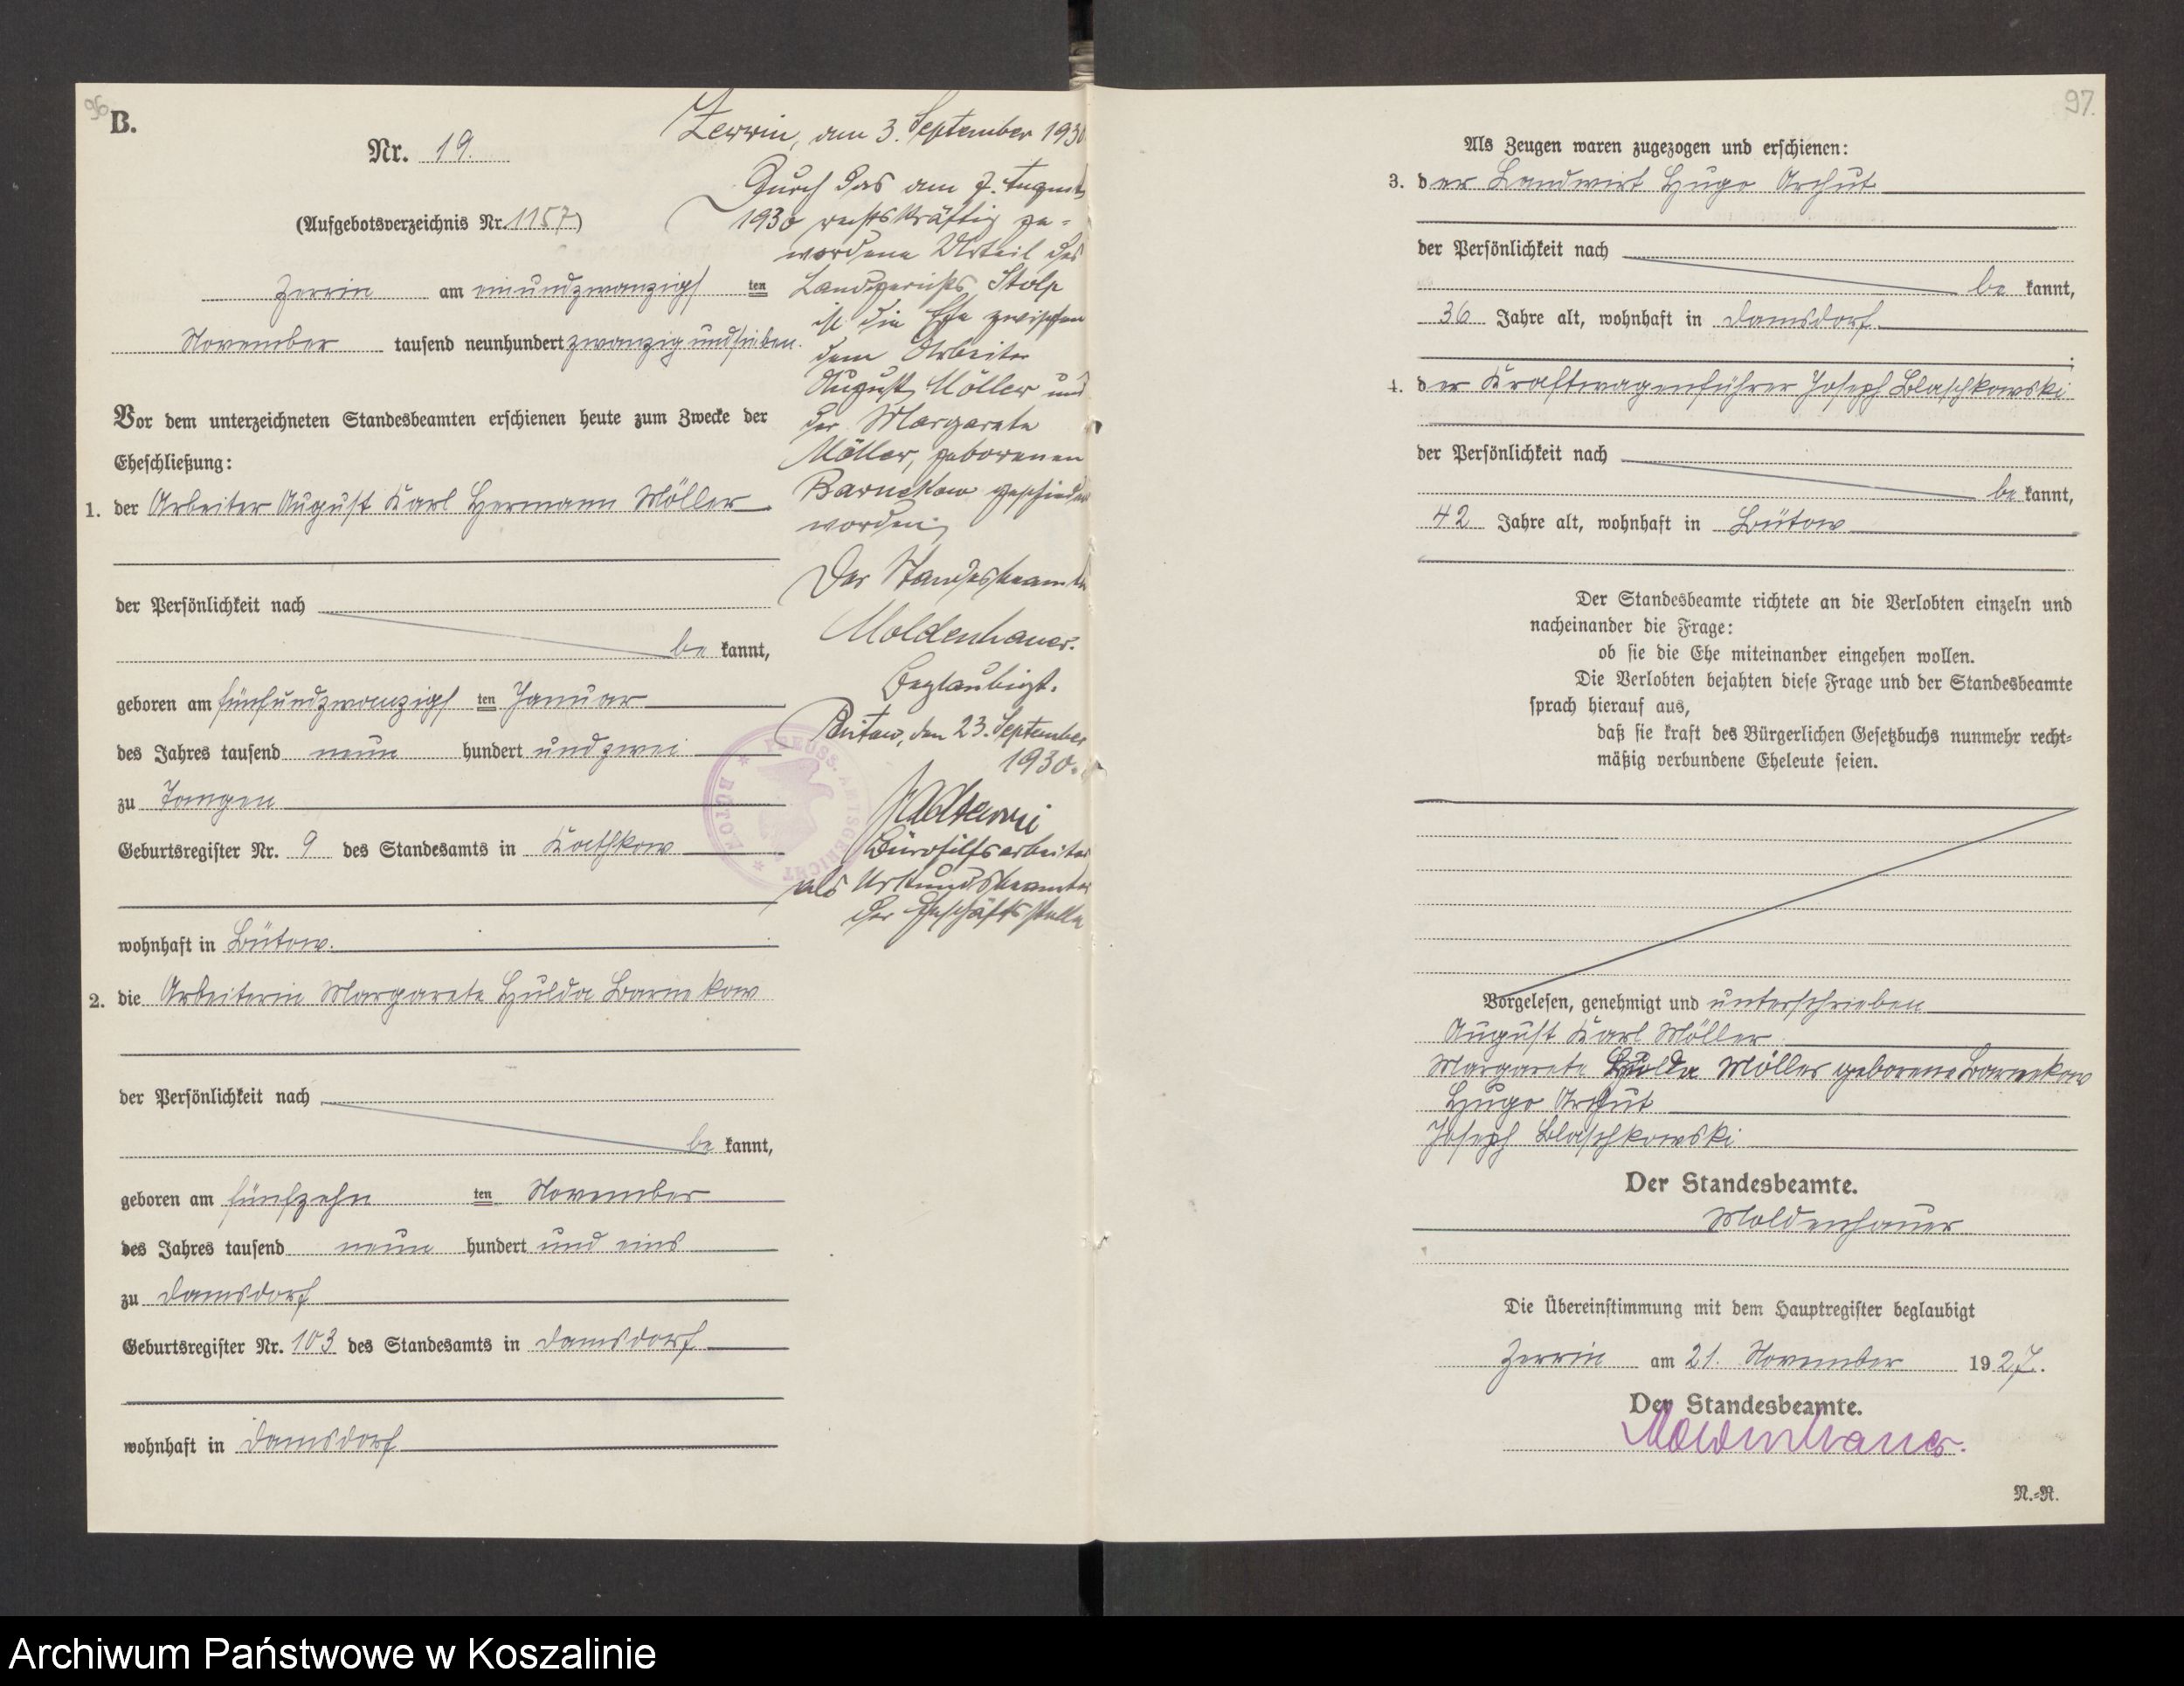 96
B.
Nr. 19.
(Aufgebotsverzeichnis Nr. 1157)
Zerrin am einundzwanzigsten
November tausend neunhundert zwanzig und sieben.
Vor dem unterzeichneten Standesbeamten erschienen heute zum Zwecke der
Eheschließung:
1. der Arbeiter August Karl Hermann Möller
der Persönlichkeit nach
be kannt,
geboren am fünfundzwanzigsten Januar
des Jahres tausend neun hundert und zwei
zu Tangen
Geburtsregister Nr. 9 des Standesamts in Kathkow
wohnhaft in Bütow.
2. die Arbeiterin Margarete Hulda Barnekow
der Persönlichkeit nach
be kannt,
geboren am fünfzehn ten November
des Jahres tausend neun hundert und eins
zu Damsdorf
Geburtsregister Nr. 103 des Standesamts in Damsdorf
wohnhaft in Damsdorf
Zerrin, am 3. September 1930
Durch das am 7. August
1930 rechtskräftig ge-
wordene Urteil des
Landgerichts Stolp
ist die Ehe zwischen
dem Arbeiter
August Möller und
der Margarete
Möller, geborenen
Barnekow geschieden
worden.
Der Standesbeamte
Moldenhauer.
Beglaubigt.
Bütow, den 23. September
1930.
Bürohilfsarbeiter
als Urkundsbeamter
der Geschäftsstelle
PREUSS. AMTSGERICHT
* BÜTOW *
97.
Als Zeugen waren zugezogen und erschienen:
3. der Landwirt Hugo Archut
der Persönlichkeit nach
be kannt,
36 Jahre alt, wohnhaft in Damsdorf
4. der Kraftwagenführer Joseph Blaschkowski
der Persönlichkeit nach
be kannt,
42 Jahre alt, wohnhaft in Bütow
Der Standesbeamte richtete an die Verlobten einzeln und
nacheinander die Frage:
ob sie die Ehe miteinander eingehen wollen.
Die Verlobten bejahten diese Frage und der Standesbeamte
sprach hierauf aus,
daß sie kraft des Bürgerlichen Gesetzbuchs nunmehr recht-
mäßig verbundene Eheleute seien.
Vorgelesen, genehmigt und unterschrieben
August Karl Möller
Margarete Hulda Möller geborene Barnekow
Hugo Archut
Joseph Blaschkowski
Der Standesbeamte.
Moldenhauer
Die Übereinstimmung mit dem Hauptregister beglaubigt
Zerrin am 21. November 1927.
Der Standesbeamte.
Moldenhauer.
N.-R.
Archiwum Państwowe w Koszalinie